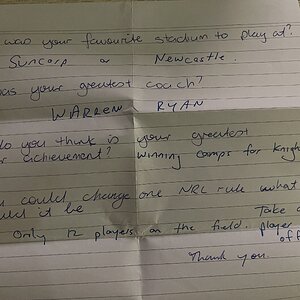 was your favourite stadium to play at?
Suncorp or Newcastle.
as your greatest coach?
WARREN RYAN
do you think is your greatest
achievement? winning comps for knigh
could change one NRL rule what
it be Take a
Only 12 players on the field. player
off
Thank you